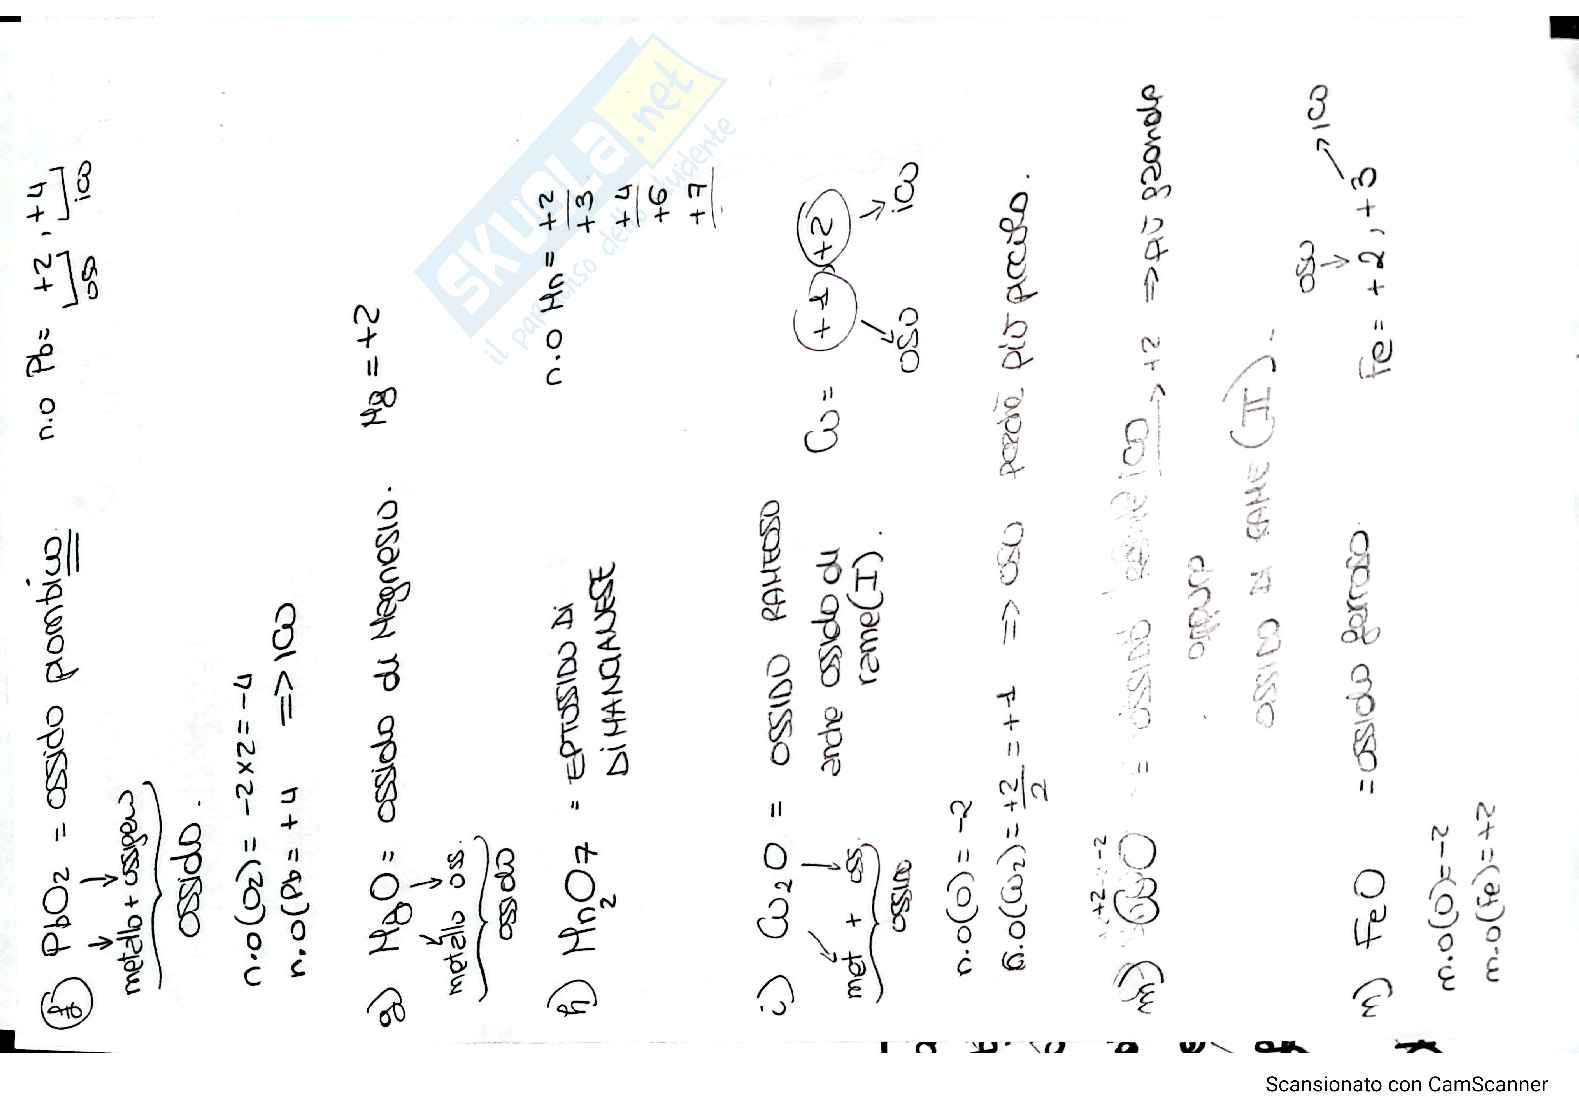 f) PbO2 = ossido piombico. n.o Pb= +2, +4
metallo + ossigeno oso ico
ossido.
n.o(O2)= -2x2= -4
n.o(Pb= +4 => ico
g) MgO= ossido di Magnesio. Mg = +2
metallo oss.
ossido
h) Mn2O7 = EPTOSSIDO DI n.o Mn= +2
DIMANGANESE +3
+4
+6
+7
i) Cu2O = OSSIDO RAMEOSO Cu= +1, +2
met + oss. anche ossido di oso ico
ossido rame(I).
n.o(O)= -2
n.o(Cu2)= +2/2 = +1 => oso perchè più piccolo.
+2 -2
m) CuO = OSSIDO ico +2 => più grande
oppure
OSSIDO DI RAME (II).
oso ico
n) FeO = ossido ferroso. Fe= +2, +3
n.o(O)= -2
n.o(Fe)= +2
SKUOLA.net
il paradiso dello studente
Scansionato con CamScanner